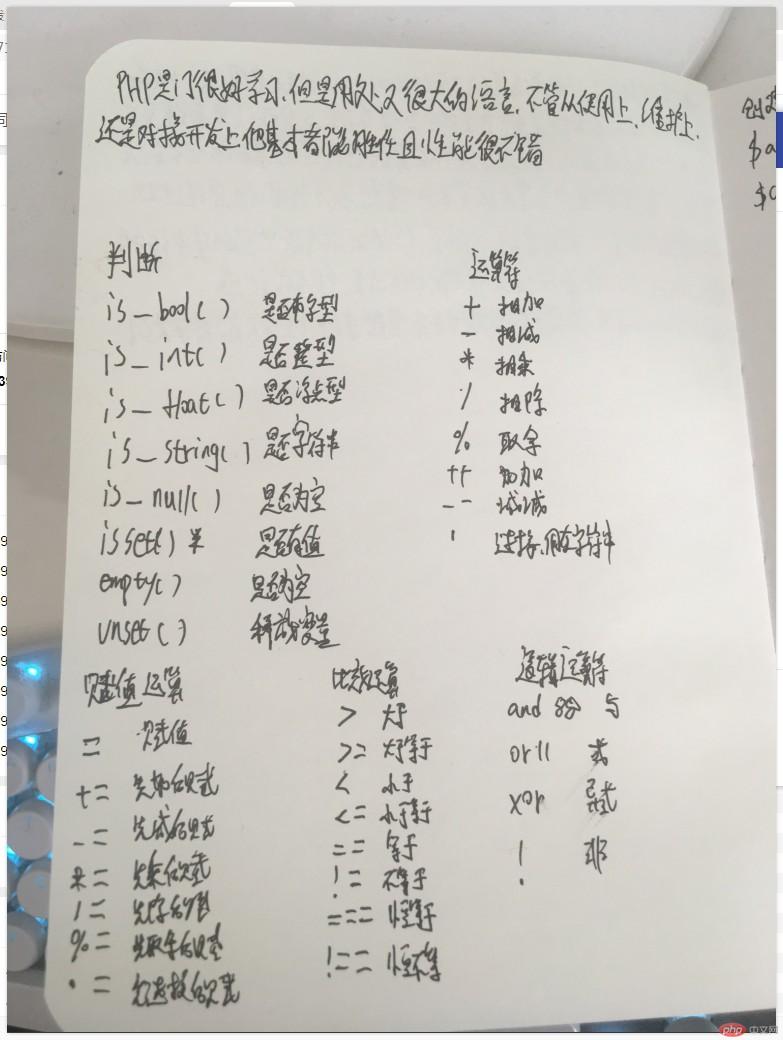 PHP是门很好学习,但是用处又很大的语言,不管从使用上,维护上,
还是对接开发上他基本都能胜任且性能很不错
判断
is_bool() 是否布尔型
is_int() 是否整型
is_float() 是否浮点型
is_string() 是否字符串
is_null() 是否为空
isset() * 是否有值
empty() 是否为空
unset() 释放变量
运算符
+ 相加
- 相减
* 相乘
/ 相除
% 取余
++ 加加
-- 减减
. 连接,用在字符串
赋值运算
= 赋值
+= 先加后赋
-= 先减后赋
*= 先乘后赋
/= 先除后赋
%= 先取余后赋
.= 先连接后赋
比较运算
> 大于
>= 大于等于
< 小于
<= 小于等于
== 等于
!= 不等于
=== 恒等于
!== 恒不等
逻辑运算符
and && 与
or || 或
xor 异或
! 非
$a
php 中文网